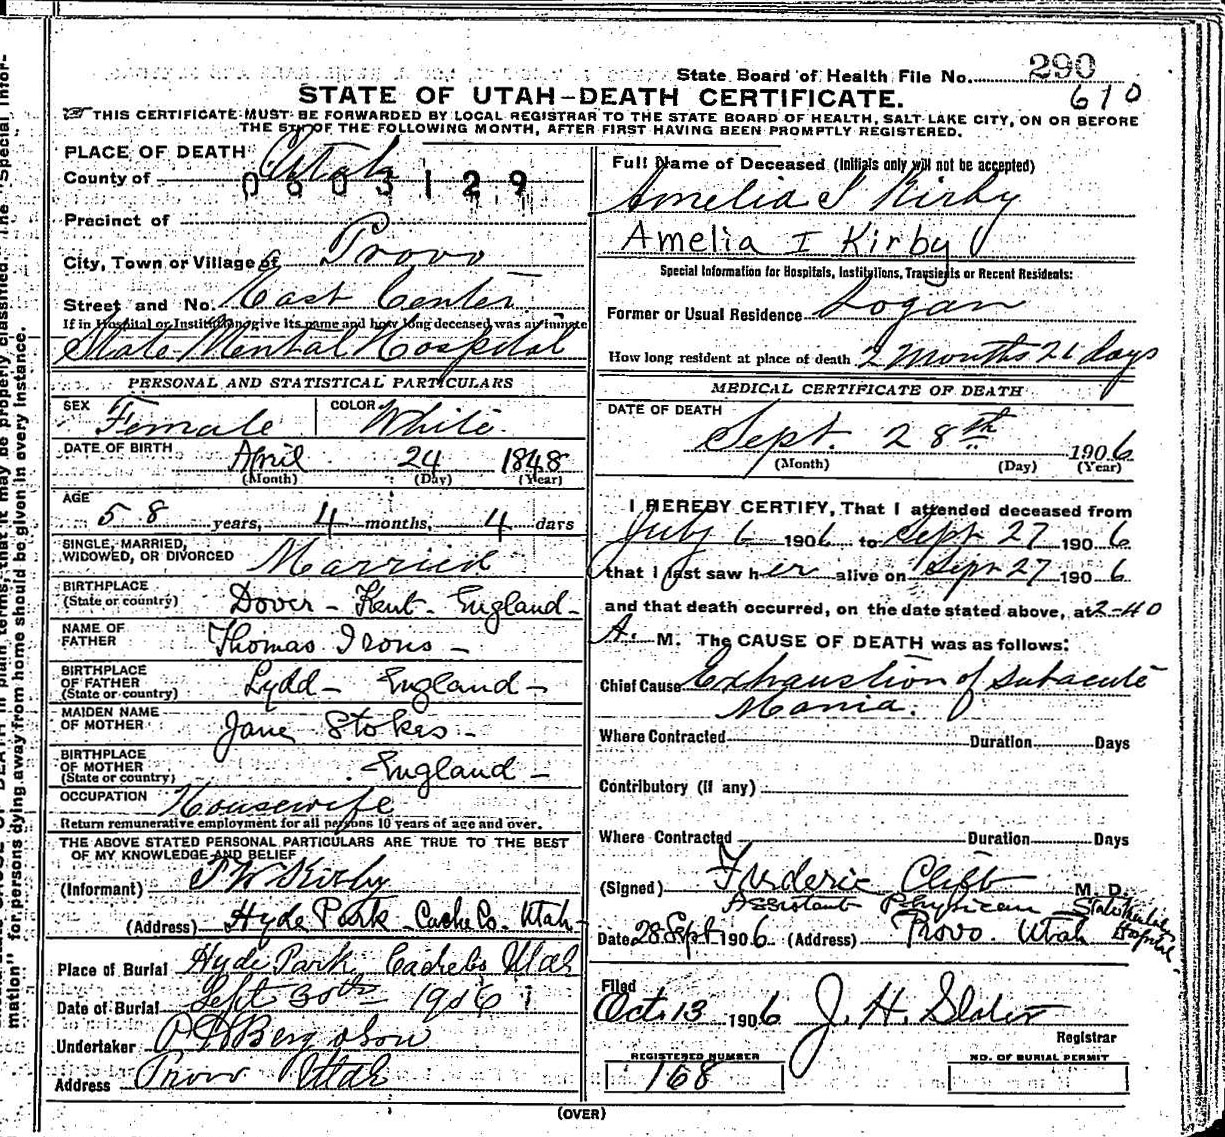 State Board of Health File No. 290
610
STATE OF UTAH—DEATH CERTIFICATE.
THIS CERTIFICATE MUST BE FORWARDED BY LOCAL REGISTRAR TO THE STATE BOARD OF HEALTH, SALT LAKE CITY, ON OR BEFORE
THE 5TH OF THE FOLLOWING MONTH, AFTER FIRST HAVING BEEN PROMPTLY REGISTERED.
PLACE OF DEATH
County of Utah
0603129
Precinct of
City, Town or Village of Provo
Street and No. East Center
If in Hospital or Institution, give its name and how long deceased was an inmate
State Mental Hospital
PERSONAL AND STATISTICAL PARTICULARS
SEX Female COLOR White
DATE OF BIRTH April 24 1848
(Month) (Day) (Year)
AGE
58 years, 4 months, 4 days
SINGLE, MARRIED,
WIDOWED, OR DIVORCED Married
BIRTHPLACE
(State or country) Dover - Kent - England -
NAME OF
FATHER Thomas Irons -
BIRTHPLACE
OF FATHER
(State or country) Lydd - England -
MAIDEN NAME
OF MOTHER Jane Stokes -
BIRTHPLACE
OF MOTHER
(State or country) England -
OCCUPATION Housewife
Return remunerative employment for all persons 10 years of age and over.
THE ABOVE STATED PERSONAL PARTICULARS ARE TRUE TO THE BEST
OF MY KNOWLEDGE AND BELIEF
(Informant) Kirby
(Address) Hyde Park Cache Co. Utah
Place of Burial Hyde Park, Cache Co Utah
Date of Burial Sept 30th 1906
Undertaker
Address Provo Utah
Full Name of Deceased (Initials only will not be accepted)
Amelia I Kirby
Amelia I Kirby
Special Information for Hospitals, Institutions, Transients or Recent Residents:
Former or Usual Residence Logan
How long resident at place of death 2 months 21 days
MEDICAL CERTIFICATE OF DEATH
DATE OF DEATH
Sept. 28th 1906
(Month) (Day) (Year)
I HEREBY CERTIFY, That I attended deceased from
July 6 1906 to Sept 27 1906
that I last saw her alive on Sept 27 1906
and that death occurred, on the date stated above, at 2-40
A. M. The CAUSE OF DEATH was as follows:
Chief Cause Exhaustion of Subacute
Mania.
Where Contracted Duration Days
Contributory (if any)
Where Contracted Duration Days
(Signed) Frederic Clift M. D.
Assistant Physician State Mental Hospital
Date 28 Sept 1906 (Address) Provo. Utah
Filed
Oct. 13 1906 J. H. Slater
Registrar
REGISTERED NUMBER
168
NO. OF BURIAL PERMIT
(OVER)